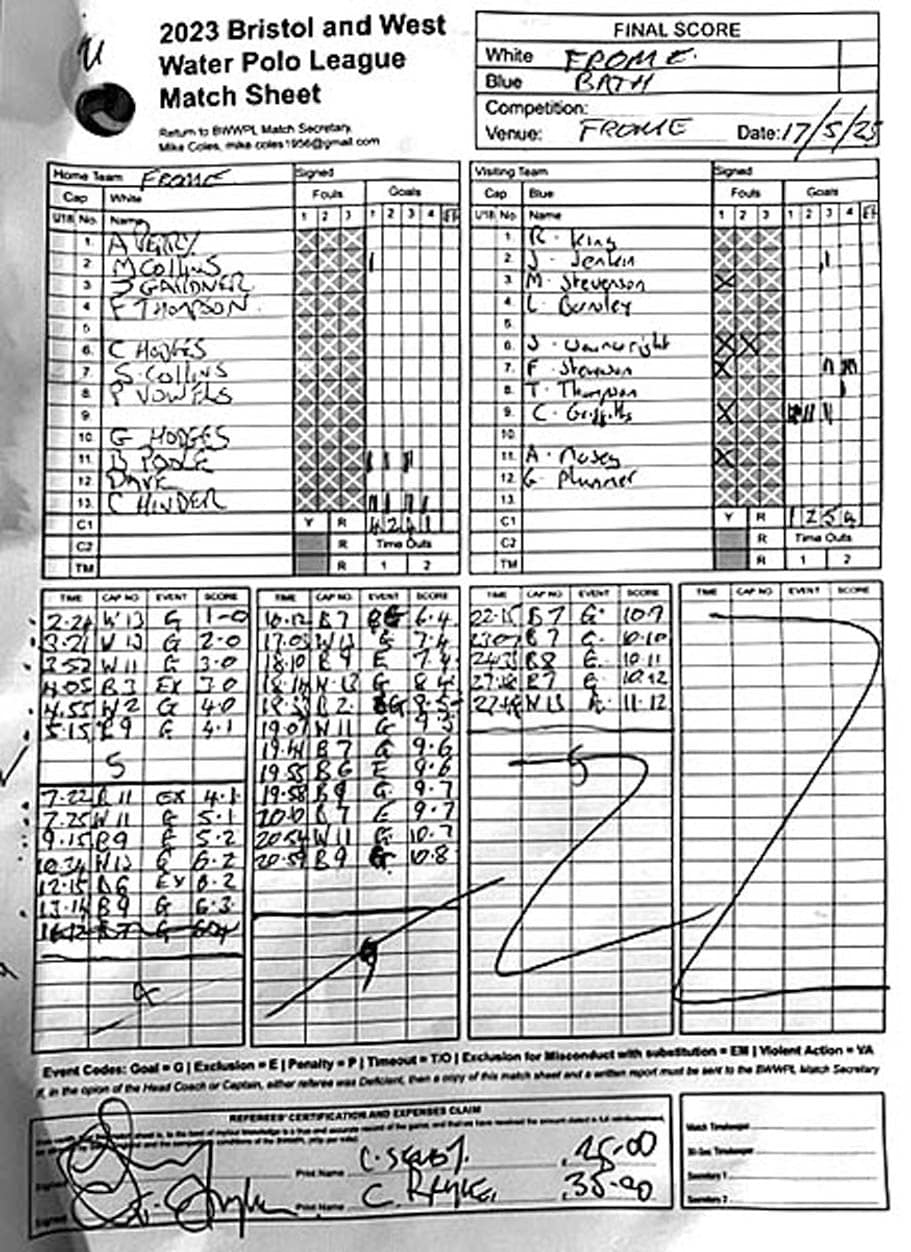 2023 Bristol and West
Water Polo League
Match Sheet
Return to BWWPL Match Secretary,
Mike Coles, mike.coles1956@gmail.com
FINAL SCORE
White FROME
Blue BATH
Competition:
Venue: FROME Date: 17/5/23
Home Team FROME Signed
Cap White Fouls Goals
U18 No. Name 1 2 3 1 2 3 4
1. A PERRY
2 M COLLINS
3 J GARDNER
4 F THOMPSON
5
6. C HODGES
7. S. COLLINS
8. P VOWELS
9.
10. G HODGES
11. B POOLE
12 DAVE
13. C HINDER
C1 Y R 4 2 4 1
C2 R Time Outs
TM R 1 2
Visiting Team Signed
Cap Blue Fouls Goals
U18 No Name 1 2 3 1 2 3 4
1. R. King
2. J. Jenkin
3. M. Stevenson
4. L. Burnley
5.
6. J. Wainwright
7. F. Stevenson
8. T. Thompson
9. C. Griffiths
10.
11. A. Mosey
12. G. Plummer
13.
C1 Y R 1 2 5 4
C2 R Time Outs
TM R 1 2
TIME CAP NO EVENT SCORE
2.21 W 13 G 1-0
3.21 W 13 G 2.0
3.52 W 11 G 3.0
4.05 B3 EX 3.0
4.55 W2 G 4.0
5.15 B9 G 4.1
5
7.22 B 11 EX 4.1
7.25 W11 G 5.1
9.15 B9 G 5.2
10.34 W13 G 6.2
12.15 B6 EX 6.2
13.14 B9 G 6.3
16.12 B7 G
TIME CAP NO EVENT SCORE
16.12 B7 G 6.4
17.03 W13 G 7.4
18.10 B9 E 7.4
18.14 W 13 G 8.4
B2 G 9.5
19.07 W11 G
19.41 B7 G 9.6
19.55 B6 E 9.6
19.58 B9 G 9.7
B7 E 9.7
20.54 W11 G 10.7
20.59 B9 G 10.8
TIME CAP NO EVENT SCORE
22.15 B7 G 10.9
23.07 B7 G. 10.10
B8 G. 10.11
B7 G 10.12
W13 11.12
5
TIME CAP NO EVENT SCORE
Event Codes: Goal = G | Exclusion = E | Penalty = P | Timeout = T/O | Exclusion for Misconduct with substitution = EM | Violent Action = VA
If, in the opion of the Head Coach or Captain, either referee was Deficient, then a copy of this match sheet and a written report must be sent to the BWWPL Match Secretary
REFEREES' CERTIFICATION AND EXPENSES CLAIM
Signed Print Name
Signed Print Name C.
Match Timekeeper
30-Sec Timekeeper
Secretary 1
Secretary 2